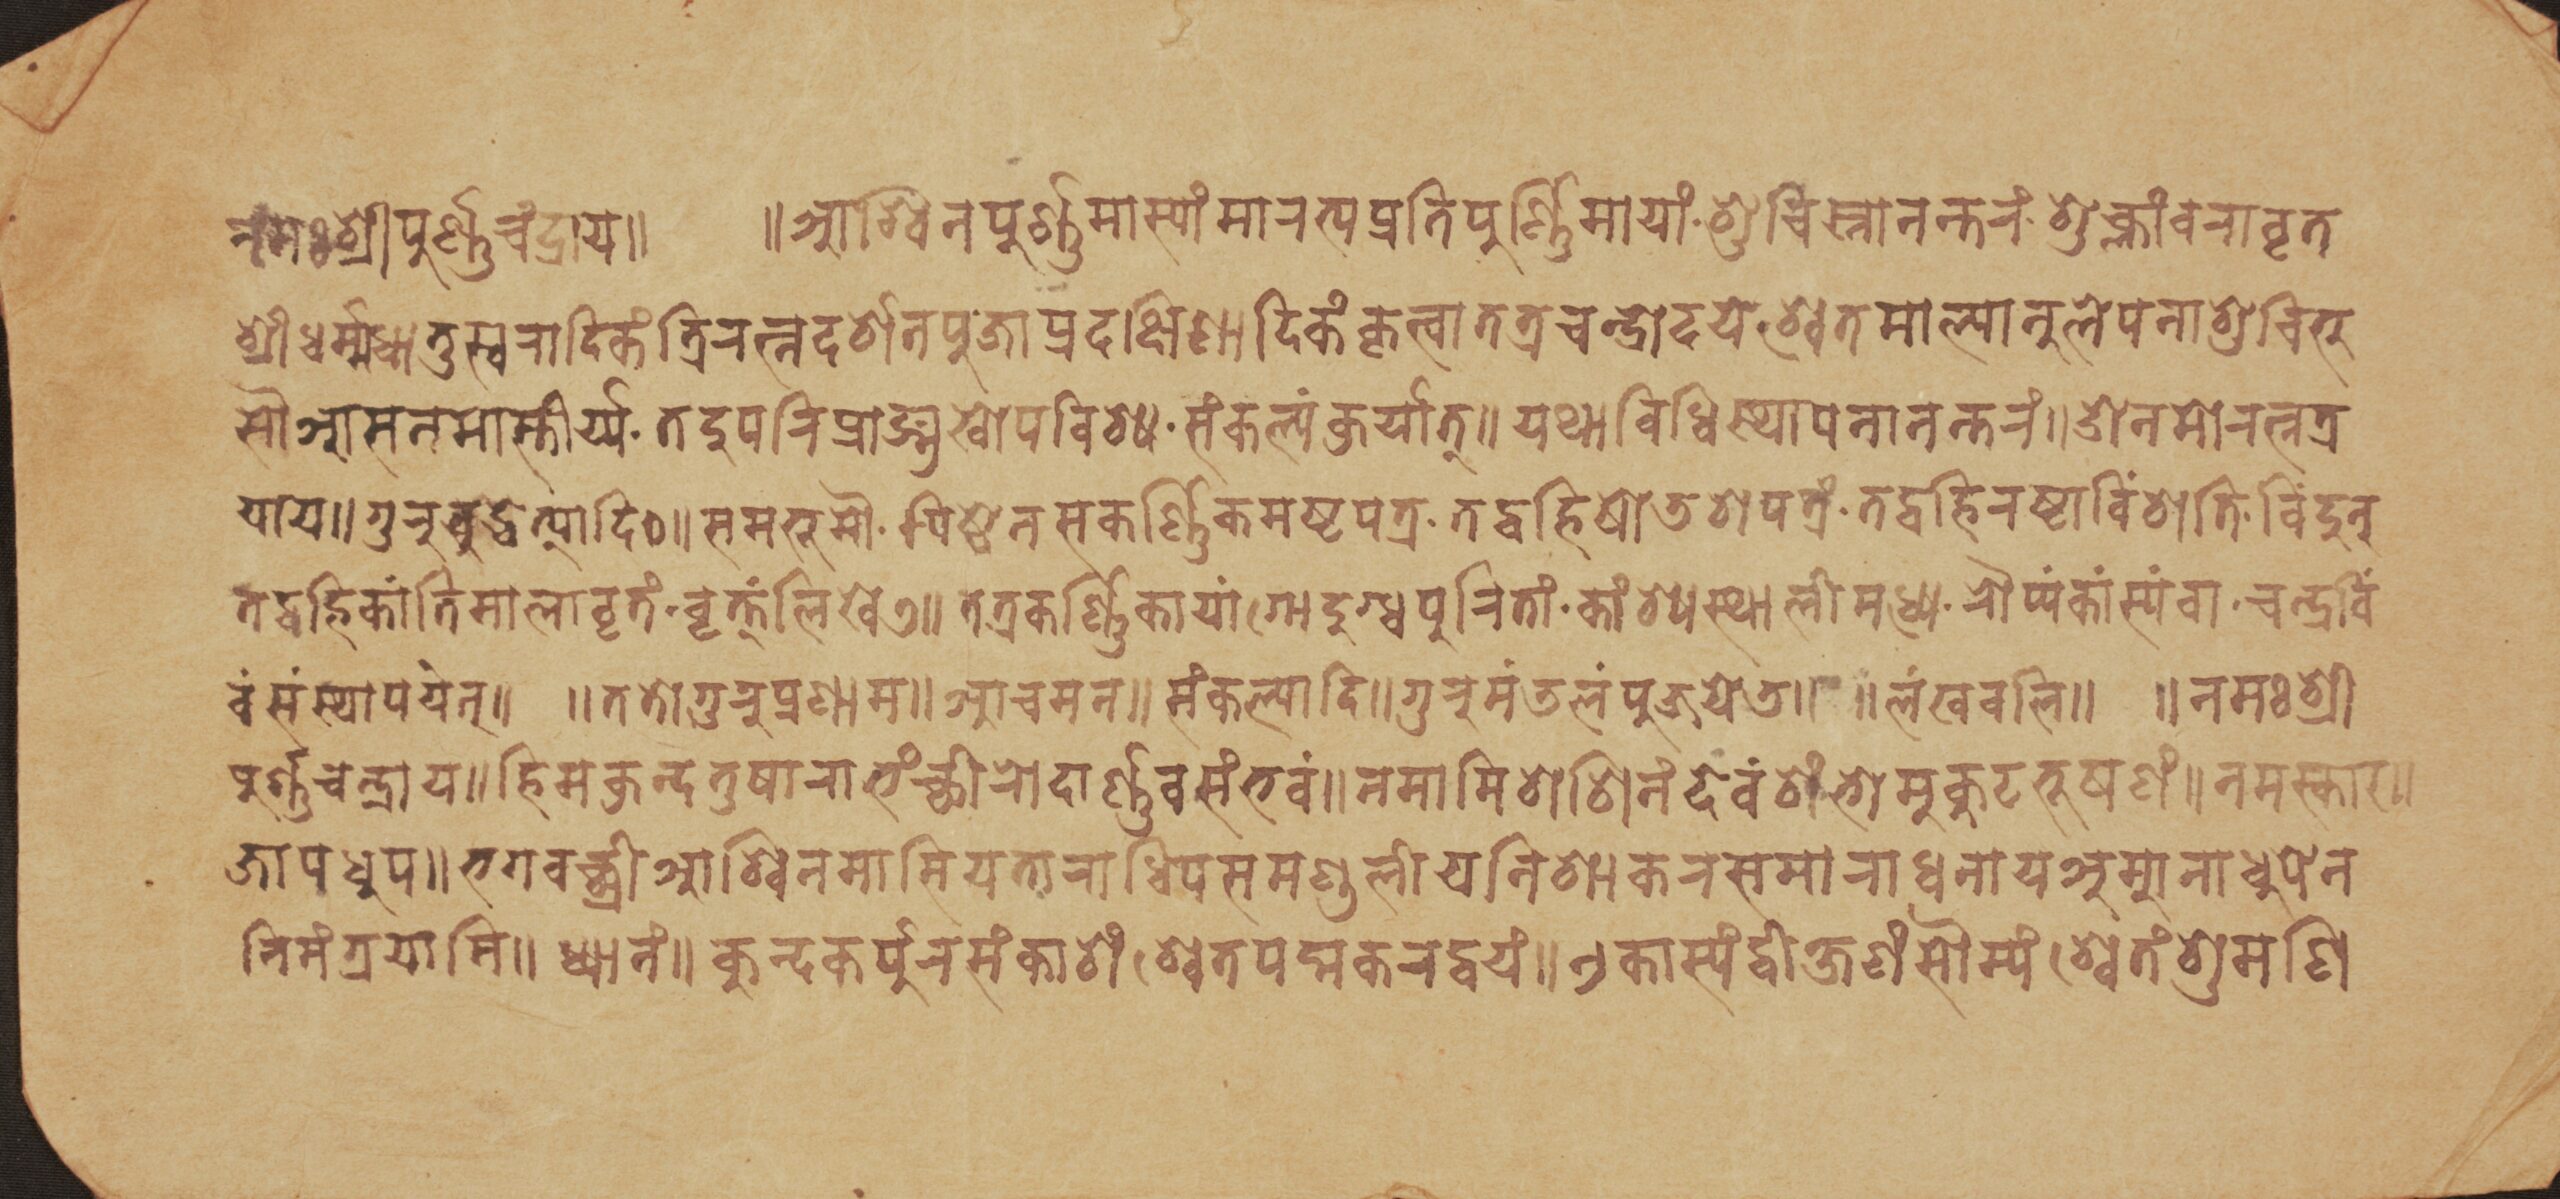 नमः श्री पुर्ण्णचंद्राय॥ ॥आश्विनपुर्ण्णमास्यांमारत्यप्रतिपुर्ण्णिमायां·शुचिस्नानन्तरं·शुक्लांवरावृत
श्रीधर्म्मधातुस्वरादिकंत्रिरत्नदर्शनपुजाप्रदक्षिणादिकंकृत्वातत्रचन्द्रोदये·श्वेतमाल्यानुलेपनाशुचिभु
सौआसनमास्तीर्य्य·तदुपरिप्राङ्मुखोपविश्य·संकल्पंकुर्यात्॥यथाविधिस्थापनानन्तरं॥ॐनमोरत्नत्र
याय॥गुरुबुद्धेत्यादि०॥समभुमौ·पिष्टेनसकर्ण्णिकमष्टपत्र·तद्वहिषोडशपत्रं·तद्वहिरष्टाविंशति·विंदुन्
तद्वहिकांतिमालावृतं·वृत्तंलिखेत्॥तत्रकर्ण्णिकायांगोदुग्धपुरितां·कांश्यस्थालीमध्य·रौप्यंकांस्यंवा·चन्द्रविं
वंसंस्थापयेत्॥ ॥ततोगुरुप्रणाम॥आचमन॥संकल्पादि॥गुरुमंडलंपुजयेत्॥ ॥लंखवलि॥ ॥नमःश्री
पुर्ण्णचन्द्राय॥हिमकुन्दतुषाराभंच्छीरोदार्ण्णवसंभवं॥नमामिशशिनंदेवंशंभोमुकुटभूषणं॥नमस्कार॥
जापधुप॥भगवच्छ्रीआश्विनमासियताराधिपसमण्डलीयनिशाकरसमाराधनायअमुनाधुपेन
निमंत्रयामि॥ध्यानं॥कुन्दकर्पुरसंकाशं श्वेतपद्मकरद्वयं॥एकास्यंद्वीभुजंसौम्यं श्वेतंशुमणि